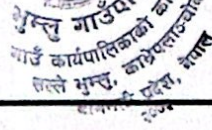 भुम्लु गाउँपा
गाउँ कार्यपालिकाको का
सल्ले भुम्लु, काभ्रेपलाञ्चोक
बागमती प्रदेश, नेपाल